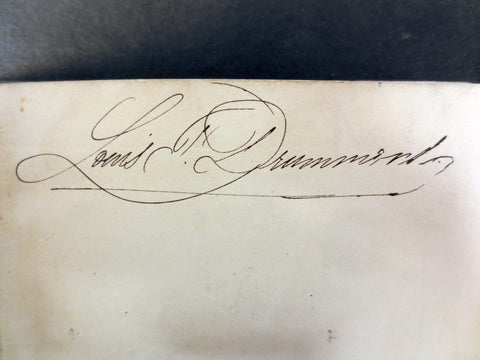 Louis T. Drummond